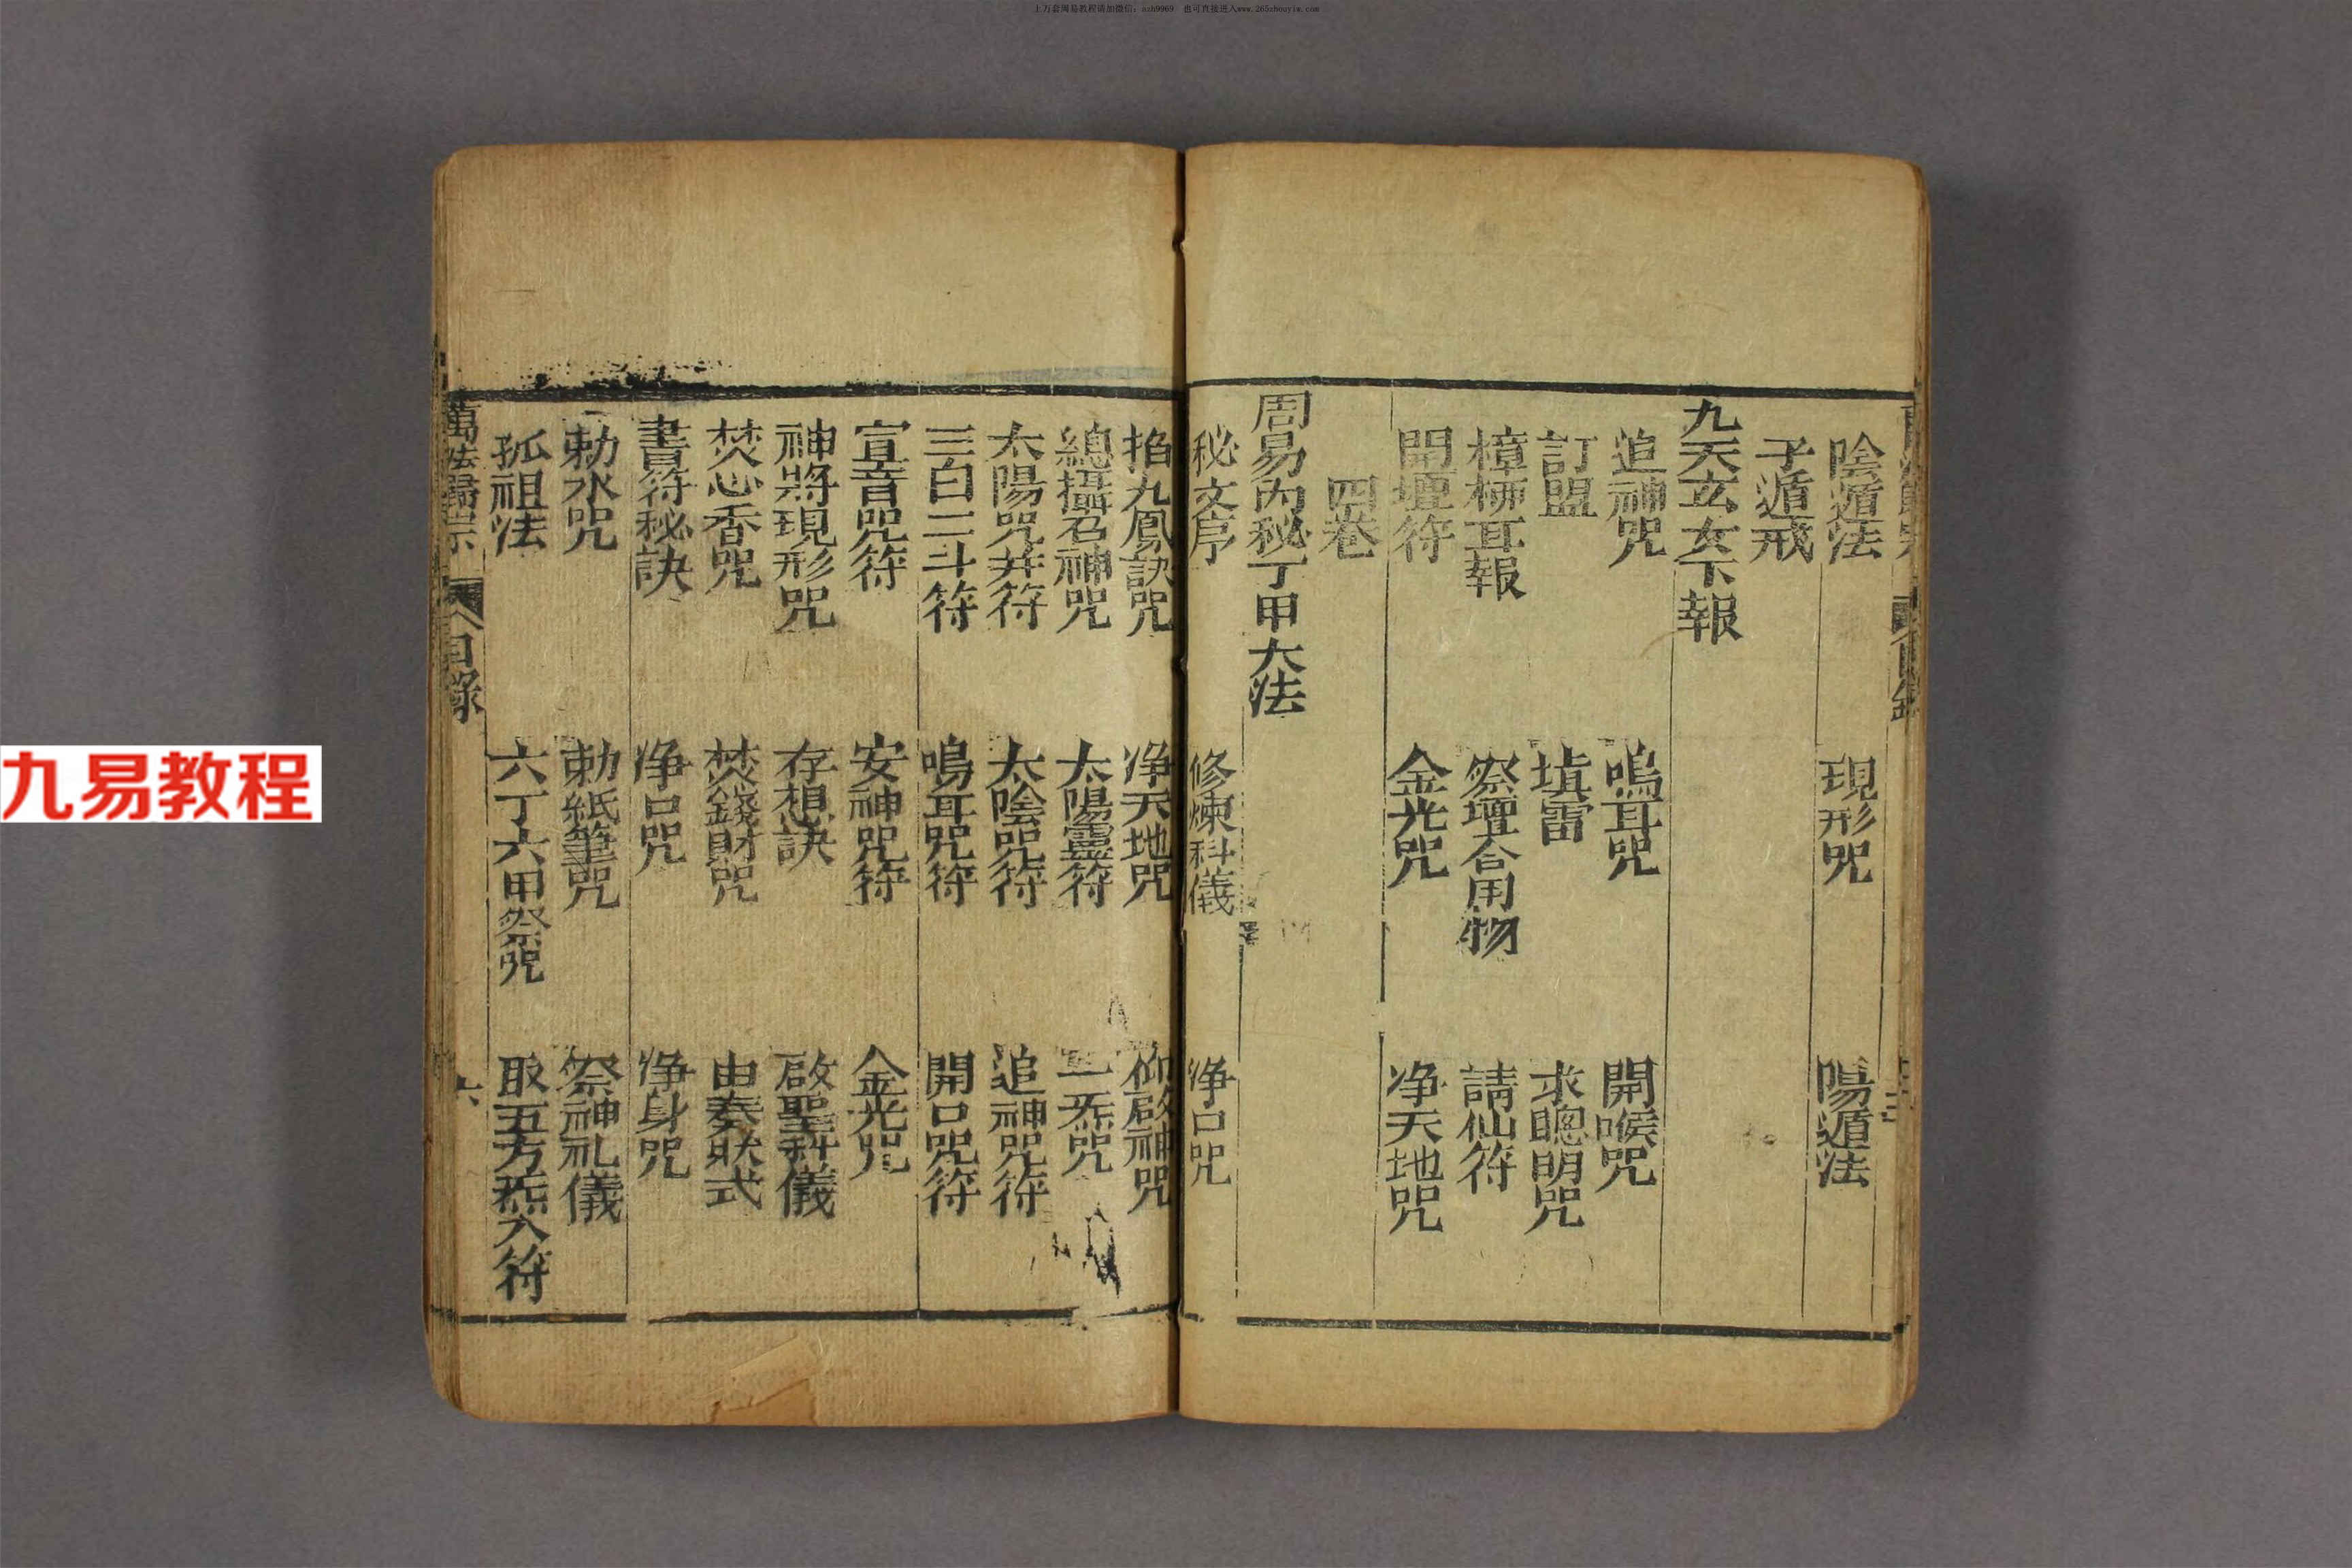 上万套周易教程请加微信：zxh9969　也可直接进入www.265zhouyiw.com
九易教程
陰遁法　現形咒　陽遁法
子遁戒
九天玄女下報
追神咒　鳴耳咒　開喉咒
訂盟　填雷　求聰明咒
樟柳耳報　祭壇合用物　請仙符
開壇符　金光咒　净天地咒
四卷
周易內秘丁甲大法
秘文序　修煉科儀　净口咒
掐九鳳訣咒　净天地咒　御啟神咒
總攝召神咒　太陽靈符　一炁咒
太陽咒并符　太陰咒符　追神咒符
三台二斗符　鳴耳咒符　開口咒符
宣音咒符　安神咒符　金光咒
神將現形咒　存想訣　啟聖科儀
焚心香咒　焚錢財咒　由奏狀式
書符秘訣　净口咒　净身咒
勅水咒　勅紙筆咒　祭神礼儀
孤祖法　六丁六甲祭咒　取五方炁入符
萬法歸宗　目錄　六